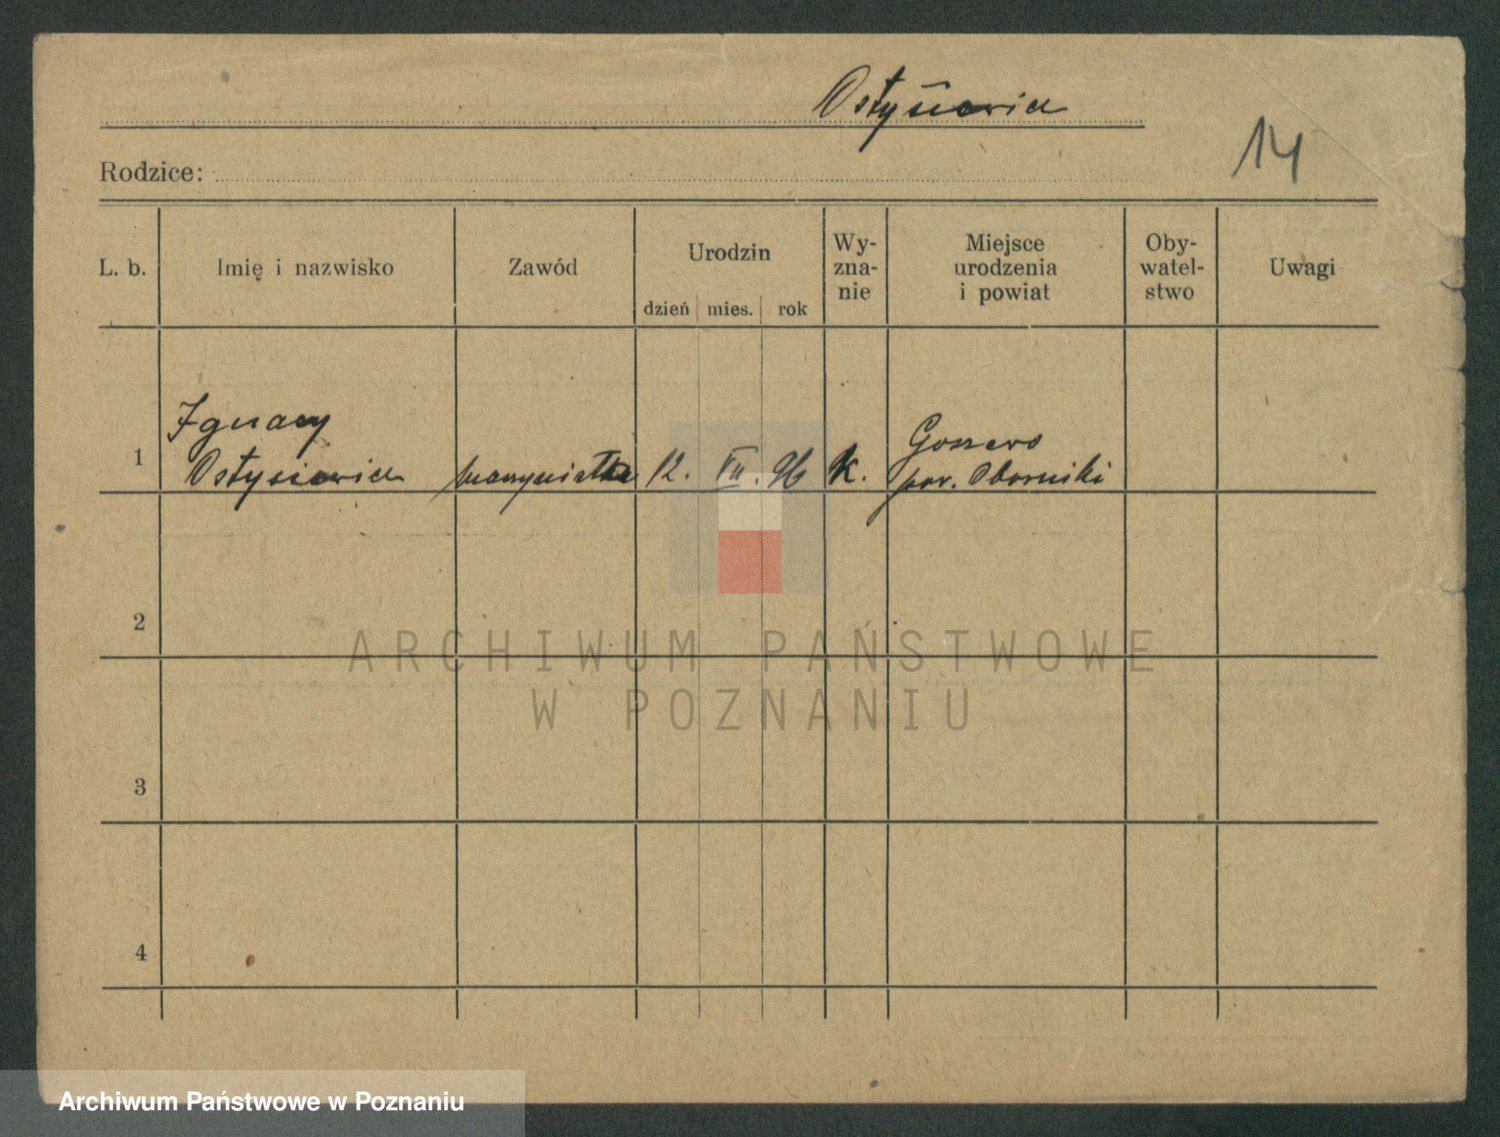 Ostysiewicz
14
Rodzice:
L. b.
Imię i nazwisko
Zawód
Urodzin
dzień mies. rok
Wy-
zna-
nie
Miejsce
urodzenia
i powiat
Oby-
watel-
stwo
Uwagi
Ignacy
1 Ostysiewicz 12. VII. 96 K.
pow. Oborniki
2
3
4
ARCHIWUM PAŃSTWOWE
W POZNANIU
Archiwum Państwowe w Poznaniu